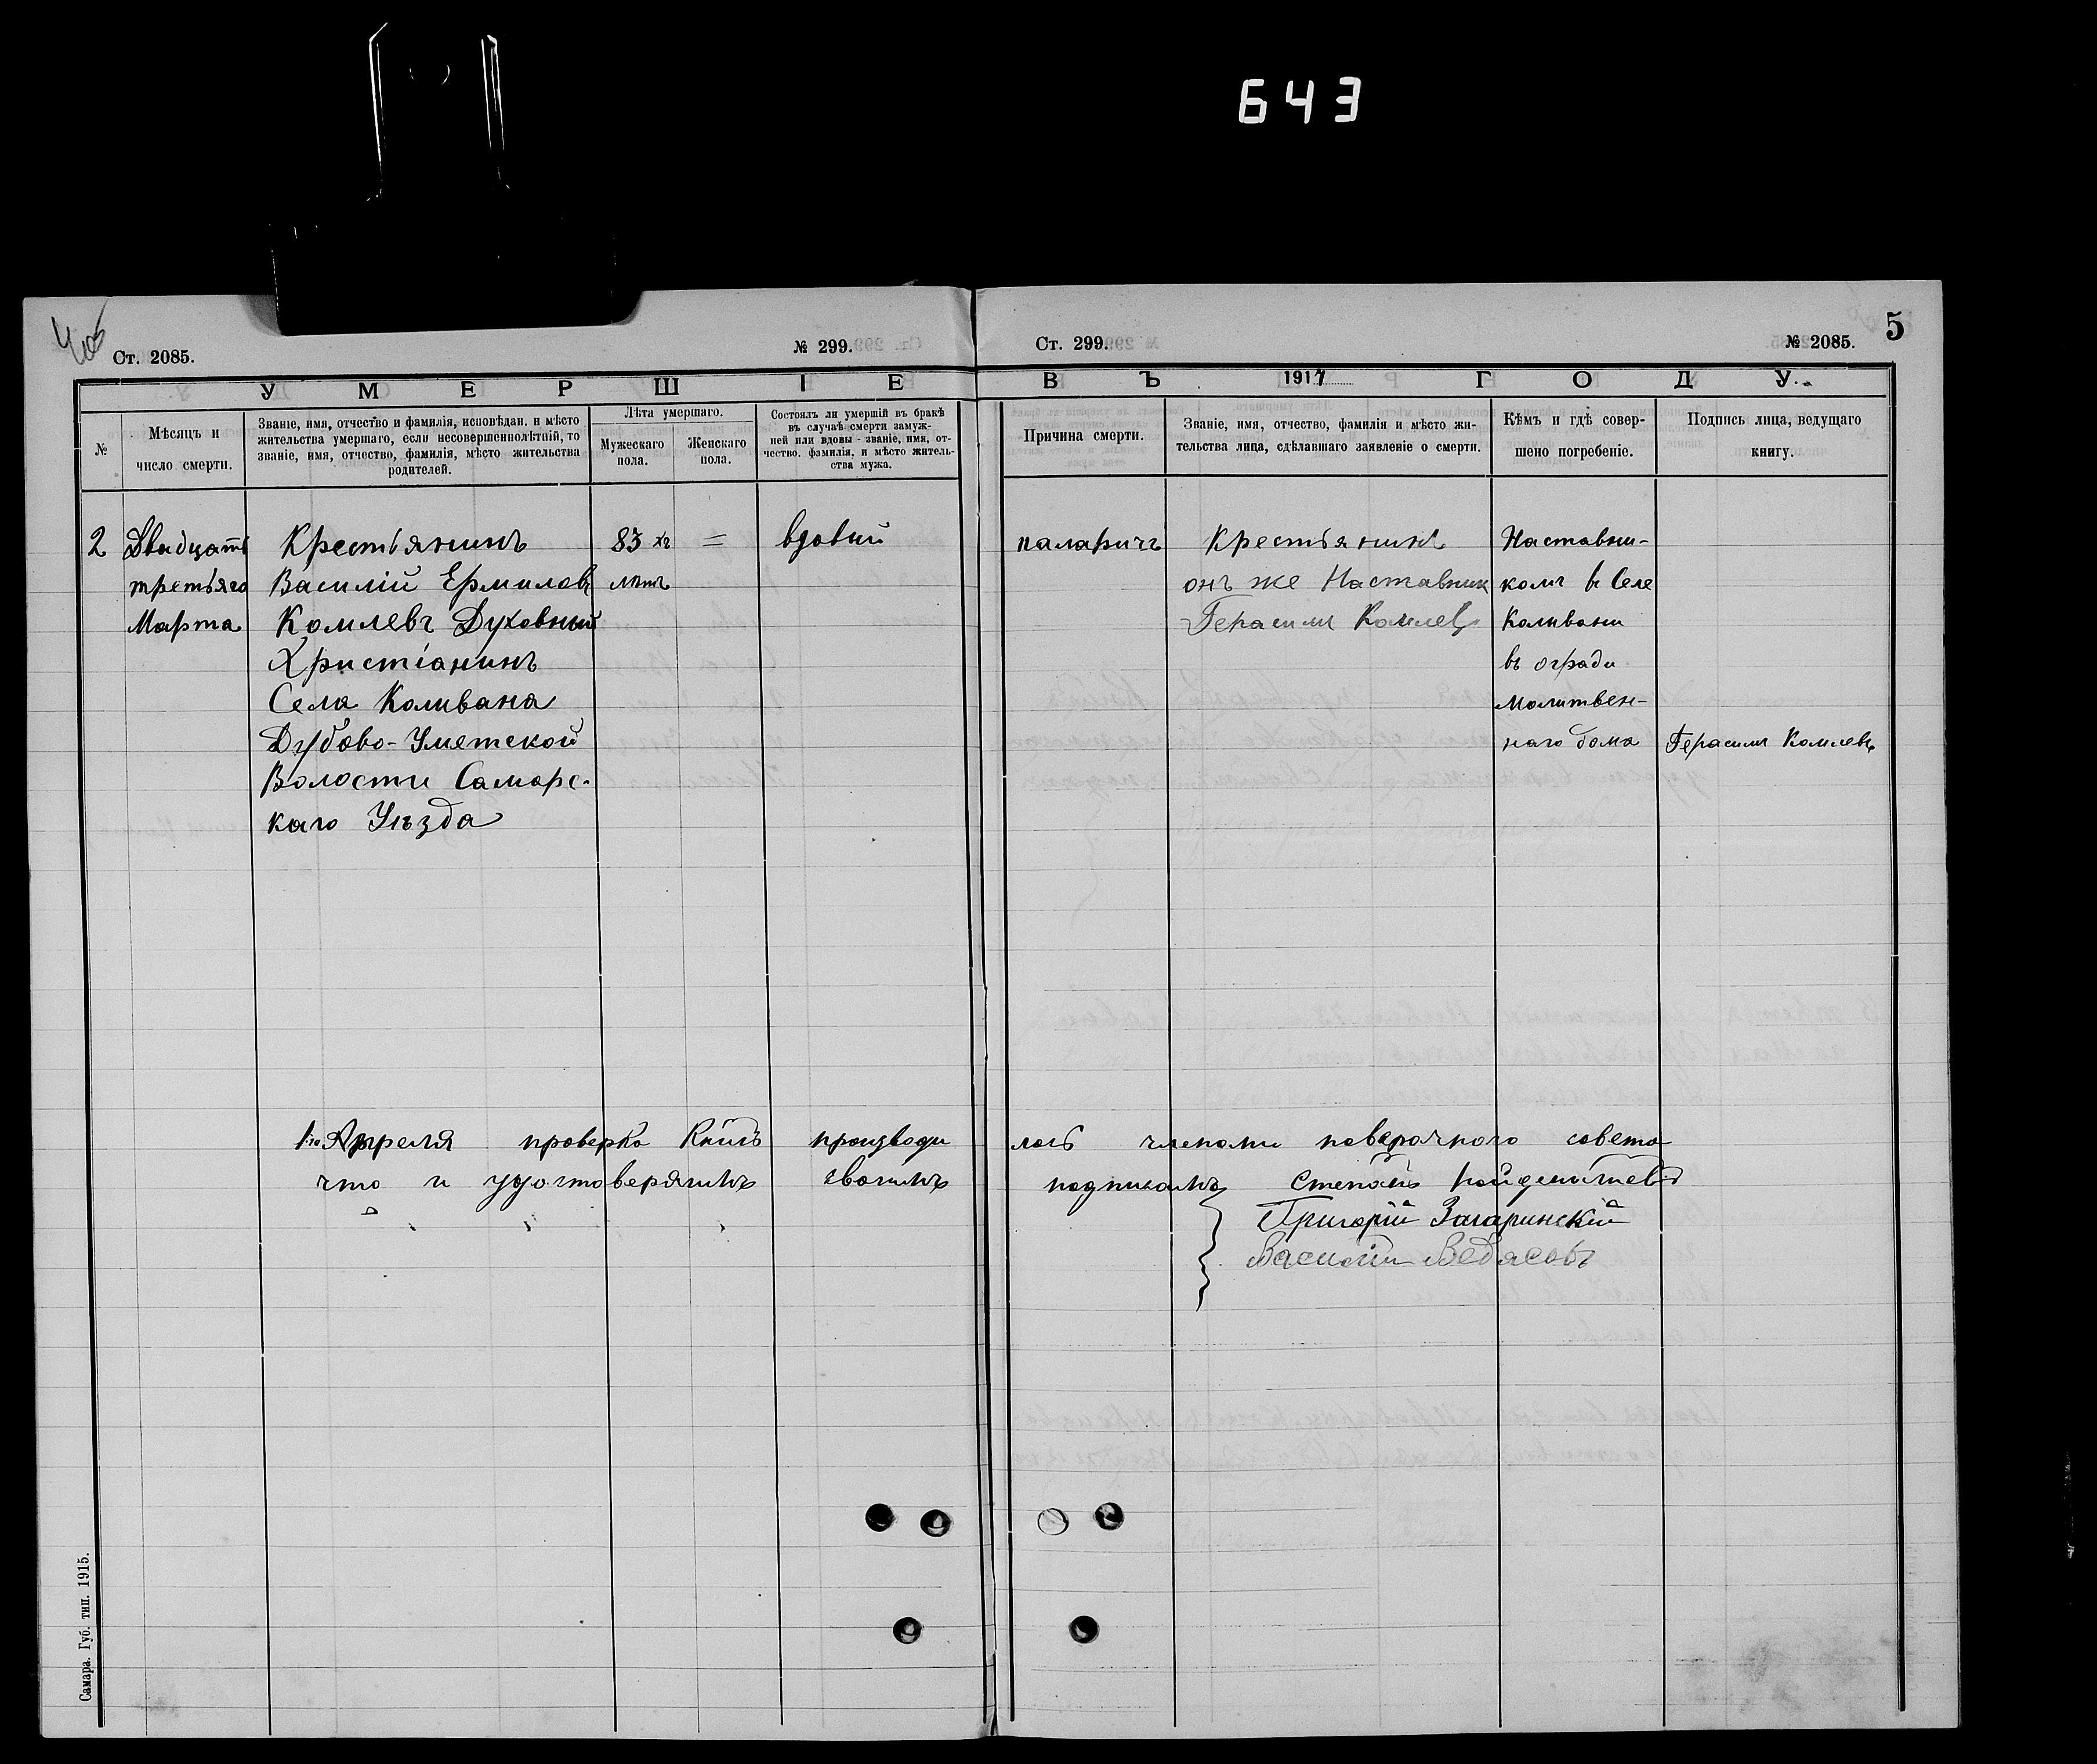 643
5
Ст. 2085.
№ 299.
Ст. 299.
№ 2085.
УМЕРШІЕ
ВЪ 1917 ГОДУ.
№
Мѣсяцъ и
число смерти.
Званіе, имя, отчество и фамилія, исповѣдан. и мѣсто
жительства умершаго, если несовершеннолѣтній, то
званіе, имя, отчество, фамилія, мѣсто жительства
родителей.
Лѣта умершаго.
Мужескаго
пола.
Женскаго
пола.
Состоялъ ли умершій въ бракѣ
въ случаѣ смерти замуж-
ней или вдовы - званіе, имя, от-
чество, фамилія, и мѣсто житель-
ства мужа.
Причина смерти.
Званіе, имя, отчество, фамилія и мѣсто жи-
тельства лица, сдѣлавшаго заявленіе о смерти.
Кѣмъ и гдѣ совер-
шено погребеніе.
Подпись лица, ведущаго
книгу.
2
Двадцать
третьяго
Марта
Крестьянинъ
Василій Ермиловъ
Комлевъ Духовный
Христіанинъ
Села Коливана
Дубово-Уметской
Волости Самарс-
каго Уѣзда
83 хъ =
лѣтъ
вдовий
паларичъ
Крестьянинъ
онъ же Наставник
Герасимъ Комлевъ
Наставни-
комъ в Селе
Коливани
въ огради
Молитвен-
наго дома
Герасимъ Комлевъ
1го Апреля проверка Книгъ производи
лось членами поверочного совета
что и удостоверяимъ своимъ
подписомъ Степанъ
Григорій Загаринскій
Василій Ведясовъ
Самара. Губ. тип. 1915.